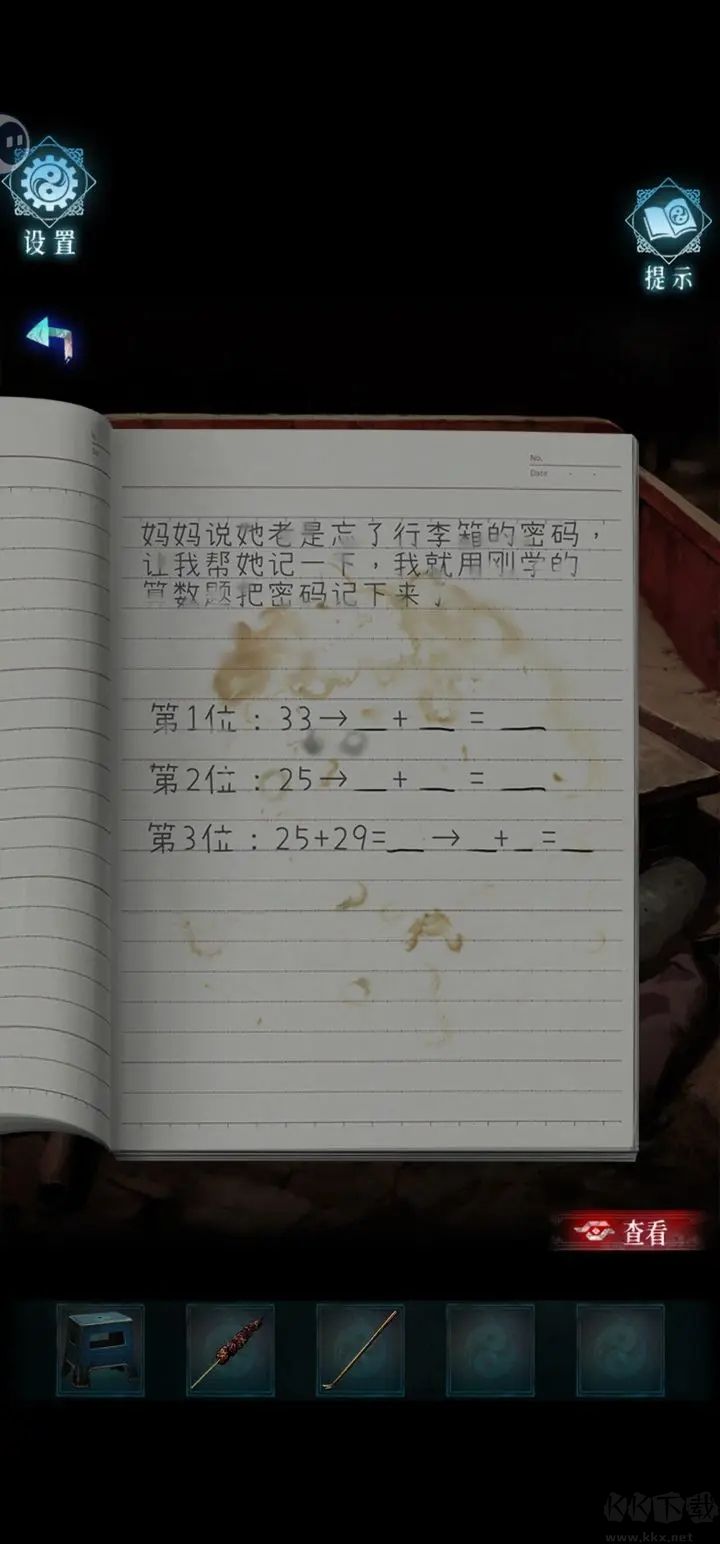 设置
提示
No.
Date
妈妈说她老是忘了行李箱的密码，
让我帮她记一下，我就用刚学的
算数题把密码记下来了
第1位：33→__+__=__
第2位：25→__+__=__
第3位：25+29=__→__+__=__
查看
KK下载
www.kkx.net